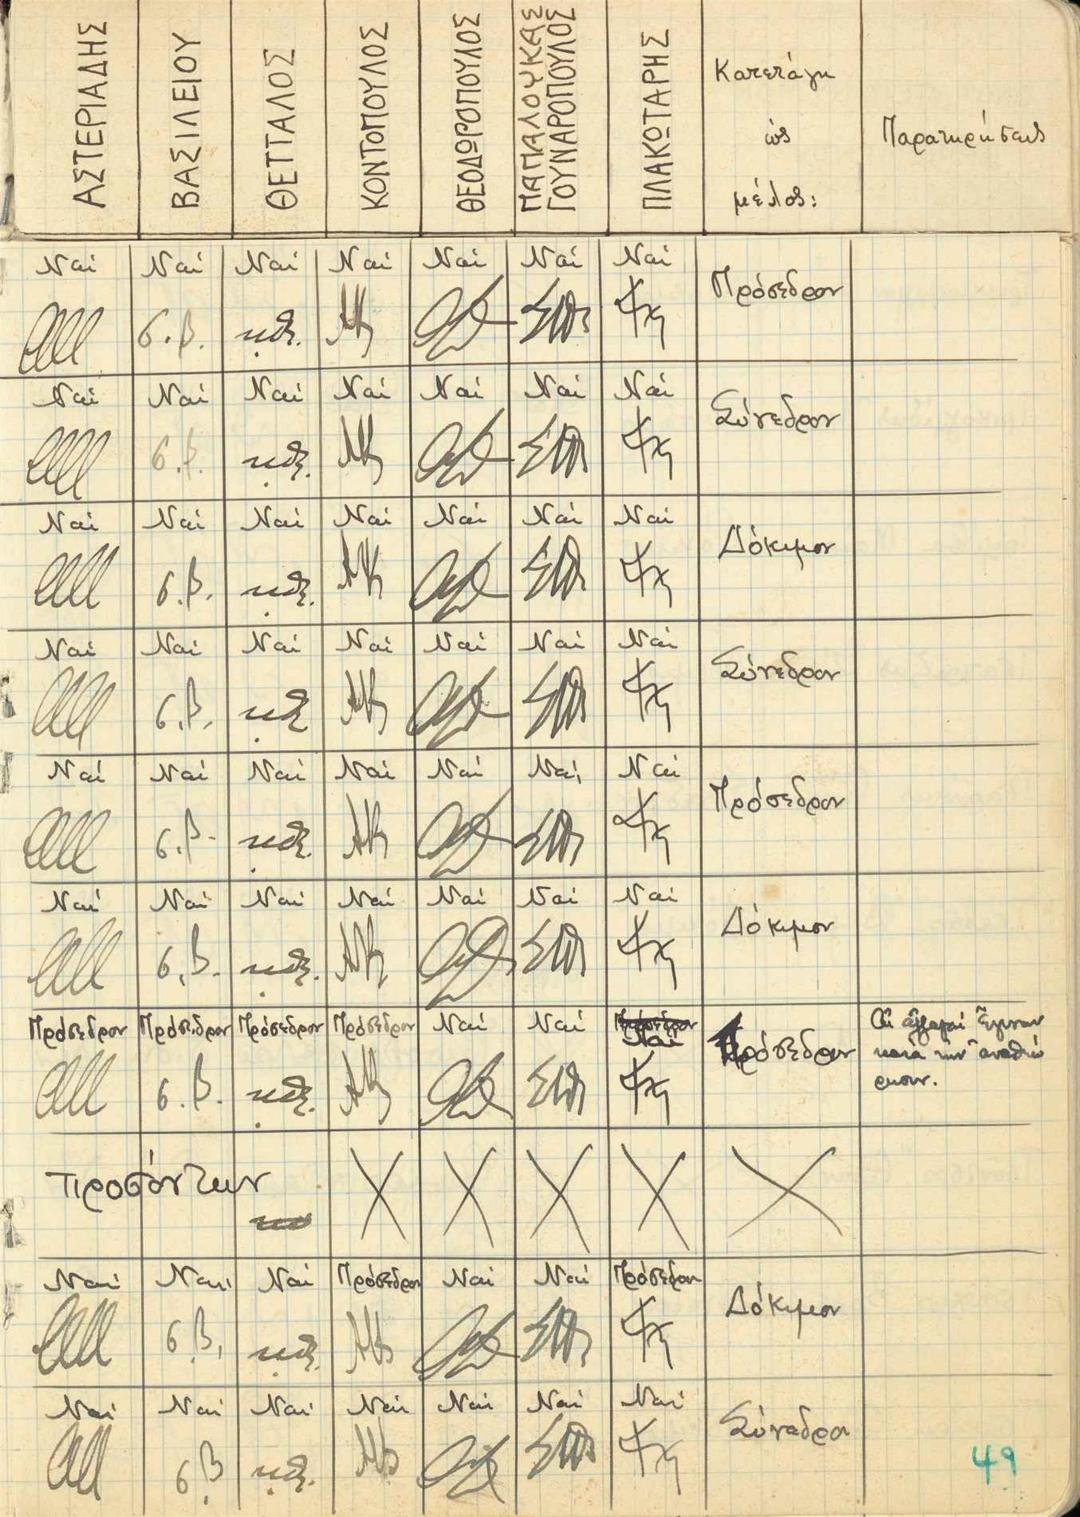 ΑΣΤΕΡΙΑΔΗΣ ΒΑΣΙΛΕΙΟΥ ΘΕΤΤΑΛΟΣ ΚΟΝΤΟΠΟΥΛΟΣ ΘΕΟΔΩΡΟΠΟΥΛΟΣ ΜΑΠΑΛΟΥΚΑΣ ΓΟΥΝΑΡΟΠΟΥΛΟΣ ΠΛΑΚΩΤΑΡΗΣ Κατετάγη ὡς μέλος: Παρατηρήσεις
Ναί Ναί Ναί Ναί Ναί Ναί Ναί
Πρόσεδρον
Σ.Β.
Ναί Ναί Ναί Ναί Ναί Ναί Ναί
Σύνεδρον
Σ.Β.
Ναί Ναί Ναί Ναί Ναί Ναί Ναί
Δόκιμον
Σ.Β.
Ναί Ναί Ναί Ναί Ναί Ναί Ναί
Σύνεδρον
Σ.Β.
Ναί Ναί Ναί Ναί Ναί Ναί Ναί
Πρόσεδρον
Σ.Β.
Ναί Ναί Ναί Ναί Ναί Ναί Ναί
Δόκιμον
Σ.Β.
Πρόσεδρον Πρόσεδρον Πρόσεδρον Πρόσεδρον Ναί Ναί Ναί Πρόσεδρον
Αἱ ἀλλαγαί ἔγιναν
κατά τήν ἀναθεώ
ρησιν.
Σ.Β.
προσόντων
Ναί Ναί Ναί Πρόσεδρον Ναί Ναί Πρόσεδρον
Δόκιμον
Σ.Β.
Ναί Ναί Ναί Ναί Ναί Ναί Ναί
Σύνεδρον
Σ.Β
49